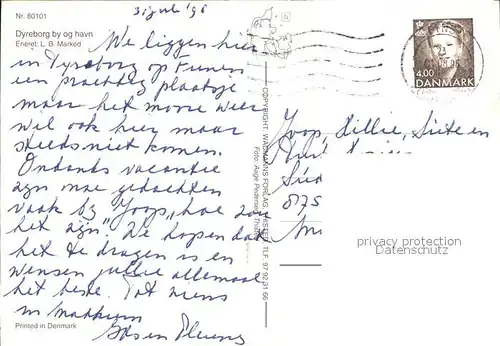 Nr. 80101
Dyreborg by og havn
Eneret: L. B. Marked
31 juli '96
We liggen hier
in Dyreborg op Funen
een prachtig plaatsje
maar het mooie weer
wil ook hier maar
steeds niet komen.
Ondanks vacantie
zijn mae gedachten
vaak bij Joop, "hoe zou
het zijn". We hopen dat
het te dragen is en
wensen jullie allemaal
het beste. Tot ziens
in Makkum
Printed in Denmark
COPYRIGHT: WADMANNS FORLAG
TLF. 97 92 31 66
Foto: Aage Pedersen, Thisted
4.00
DANMARK
Joop, Hillie, Siete en
8175
privacy protection
Datenschutz